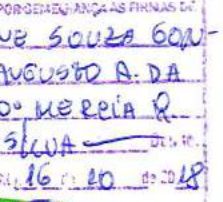 POR SEMELHANÇA AS FIRMAS DE
NE SOUZA GON-
AUGUSTO A. DA
Dº MERCIA R
SILVA
16 10 de 2018